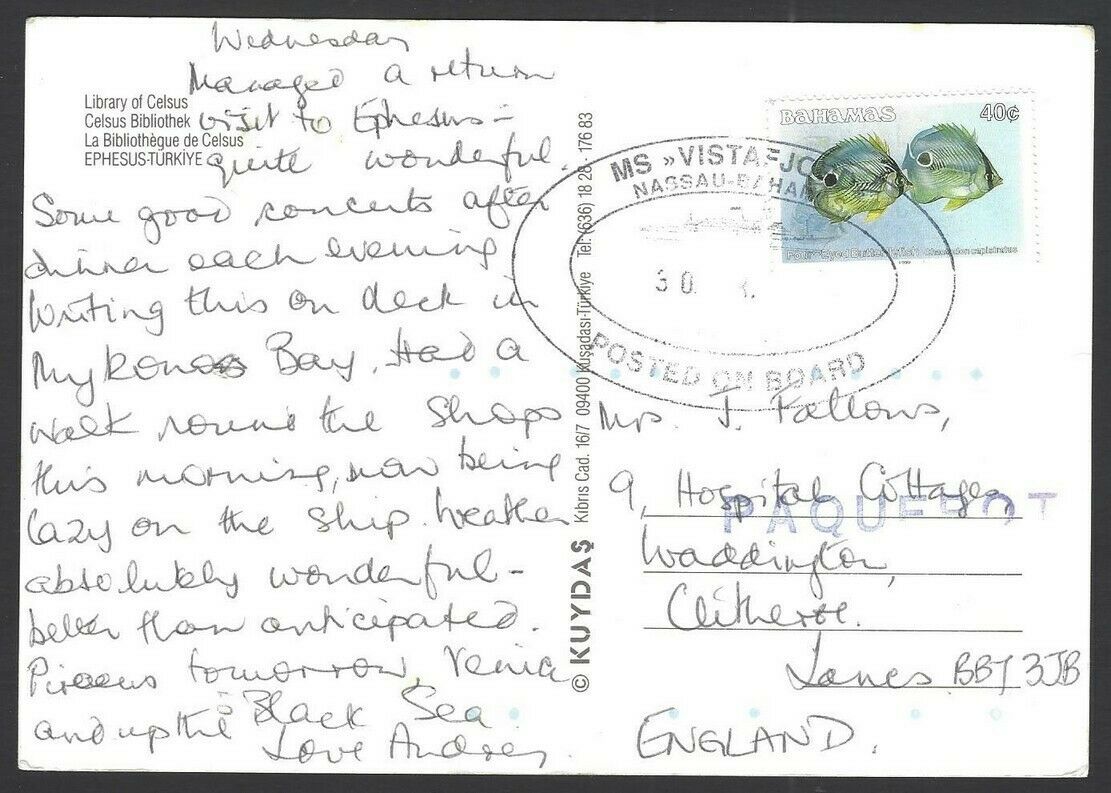 Wednesday
Managed a return
visit to Ephesus –
quite wonderful.
Some good concerts after
dinner each evening.
Writing this on deck in
Mykonos Bay. Had a
walk round the shops
this morning, now being
lazy on the ship. Weather
absolutely wonderful –
better than anticipated.
Piraeus tomorrow, Venice
and up the Black Sea
Love Andrew
Library of Celsus
Celsus Bibliothek
La Bibliothèque de Celsus
EPHESUS-TÜRKİYE
© KUYDAŞ Kıbrıs Cad. 16/7 09400 Kuşadası-Türkiye Tel: (636) 18 28 - 176 83
BAHAMAS 40¢
Four-Eyed Butterflyfish Chaetodon capistratus
MS »VISTAFJO
NASSAU-BAHAM
30
POSTED ON BOARD
PAQUEBOT
Mrs. J. Fallows,
9, Hospital Cottages,
Waddington,
Clitheroe.
Lancs BB7 3JB
ENGLAND.